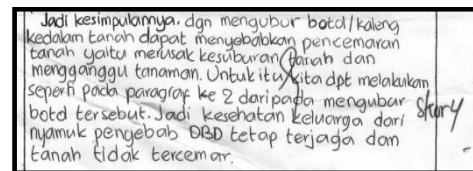 Jadi kesimpulannya. dgn mengubur botol/kaleng
kedalam tanah dapat menyebabkan pencemaran
tanah yaitu merusak kesuburan tanah dan
mengganggu tanaman. Untuk itu kita dpt melakukan
seperti pada paragraf ke 2 daripada mengubur
botol tersebut. Jadi kesehatan keluarga dari
nyamuk penyebab DBD tetap terjaga dan
tanah tidak tercemar.